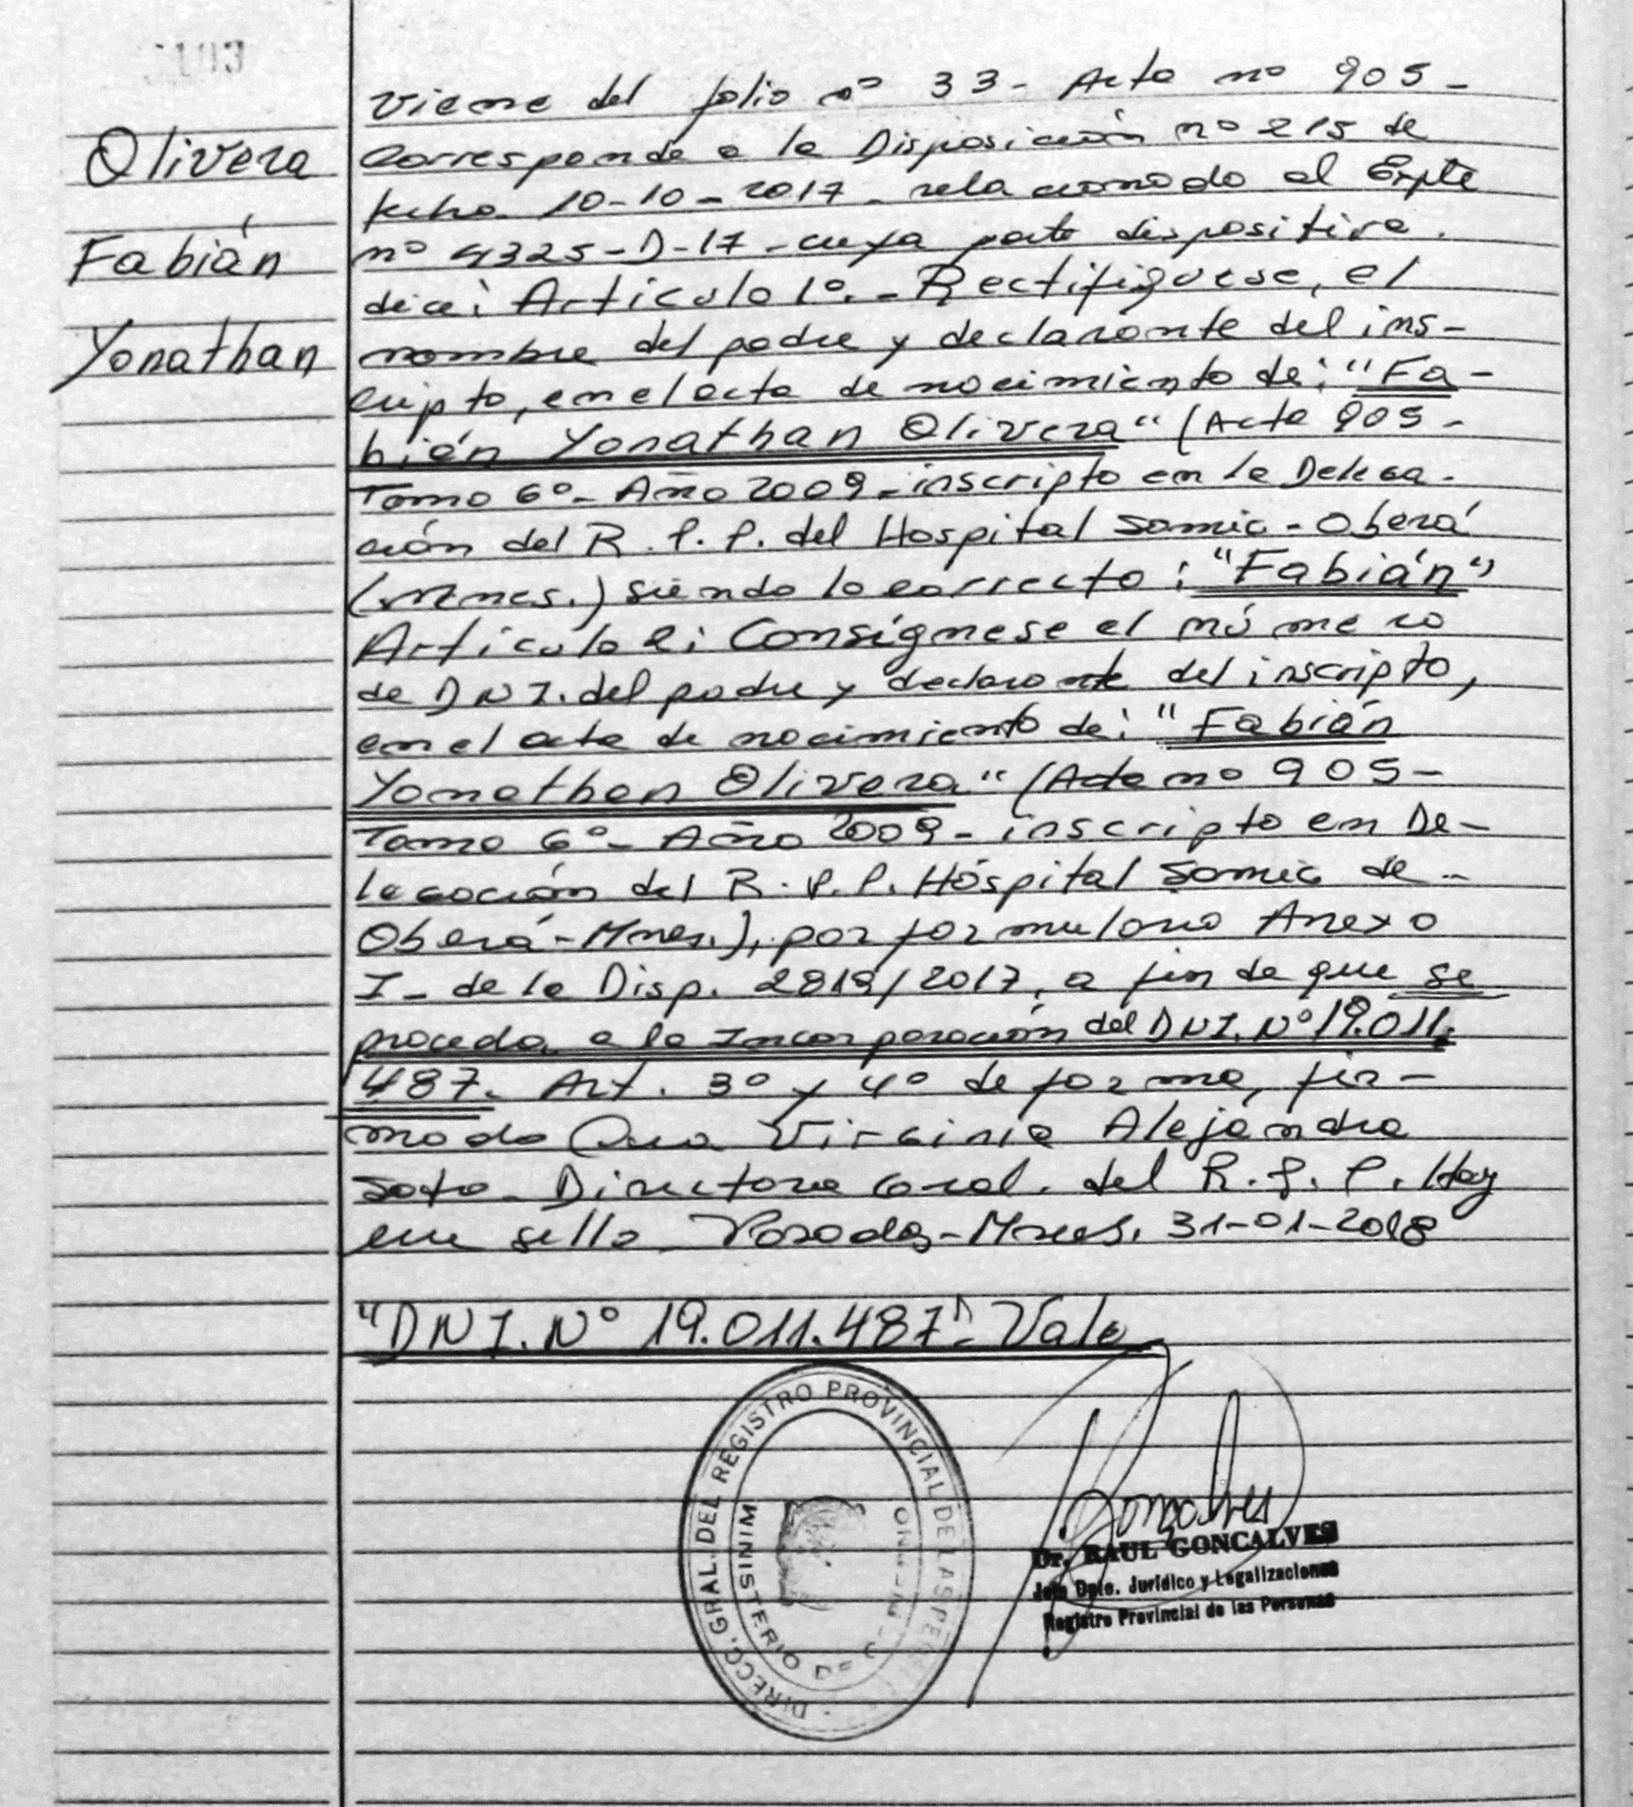 Olivera
Fabián
Yonathan
Viene del folio nº 33- Acta nº 905-
Corresponde a la Disposición nº 215 de
fecha 10-10-2017- relacionado al Expte
nº 4325-D-17- cuya parte dispositiva.
dice: Artículo 1º.- Rectifíquese, el
nombre del padre y declarante del ins-
cripto, en el acta de nacimiento de: "Fa-
bián Yonathan Olivera" (Acta 905-
Tomo 6º- Año 2009- inscripto en la Delega-
ción del R.P.P. del Hospital Samic- Oberá
(Mnes.) siendo lo correcto: "Fabián"
Artículo 2: Consígnese el número
de DNI. del padre y declarante del inscripto,
en el acta de nacimiento de: "Fabián
Yonathan Olivera" (Acta nº 905-
Tomo 6º- Año 2009- inscripto en De-
legación del R.P.P. Hospital Samic de-
Oberá-Mnes.), por formulario Anexo
I- de la Disp. 2819/2017, a fin de que se
proceda a la Incorporación del DNI. Nº 19.011.
487. Art. 3º y 4º de forma, fir-
mado Dra Virginia Alejandra
Soto- Directora Gral. del R.P.P. Hay
un sello- Posadas-Mnes. 31-01-2018
"DNI. Nº 19.011.487"- Vale
DIRECC. GRAL. DEL REGISTRO PROVINCIAL DE LAS PE
MINISTERIO DE G
Dr. RAUL GONCALVES
Jefe Dpto. Jurídico y Legalizaciones
Registro Provincial de las Personas